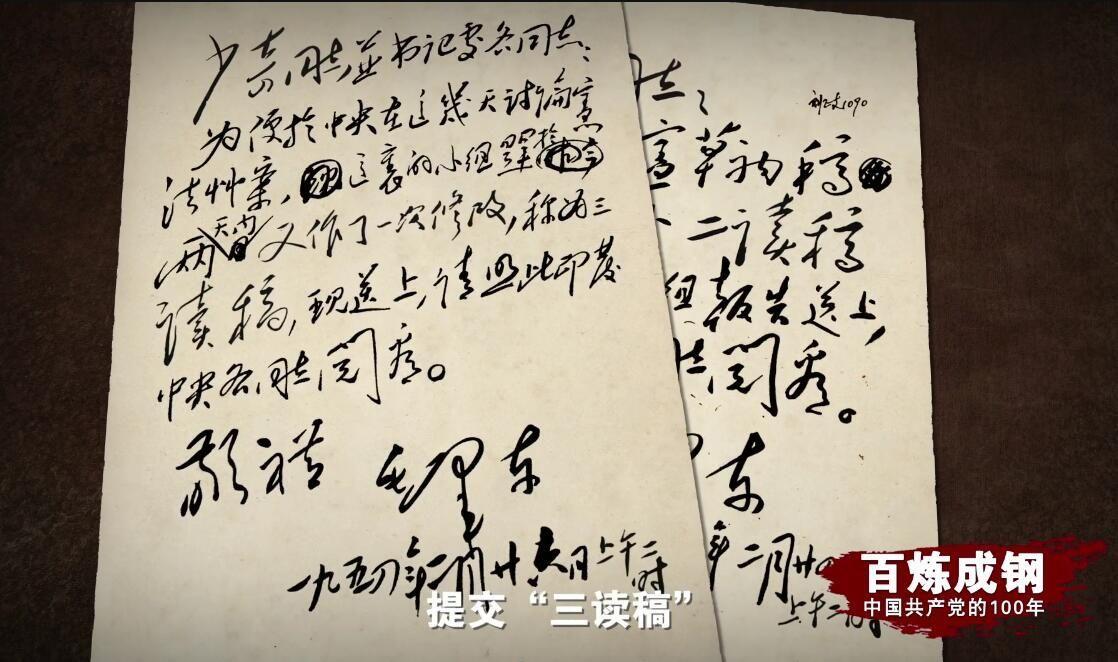 少奇同志并书记处各同志：
为便于中央在这几天讨论宪
法草案，这里的小组赶于
两天内又作了一次修改，称为三
读稿，现送上，请照此印发
中央各同志阅看。
敬礼 毛泽东
一九五四年二月廿六日上午二时
刘之文1090
同志：
宪草初稿
二读稿
组报告送上，
志阅看。
东
年二月廿四
上午二时
提交“三读稿”
百炼成钢
中国共产党的100年